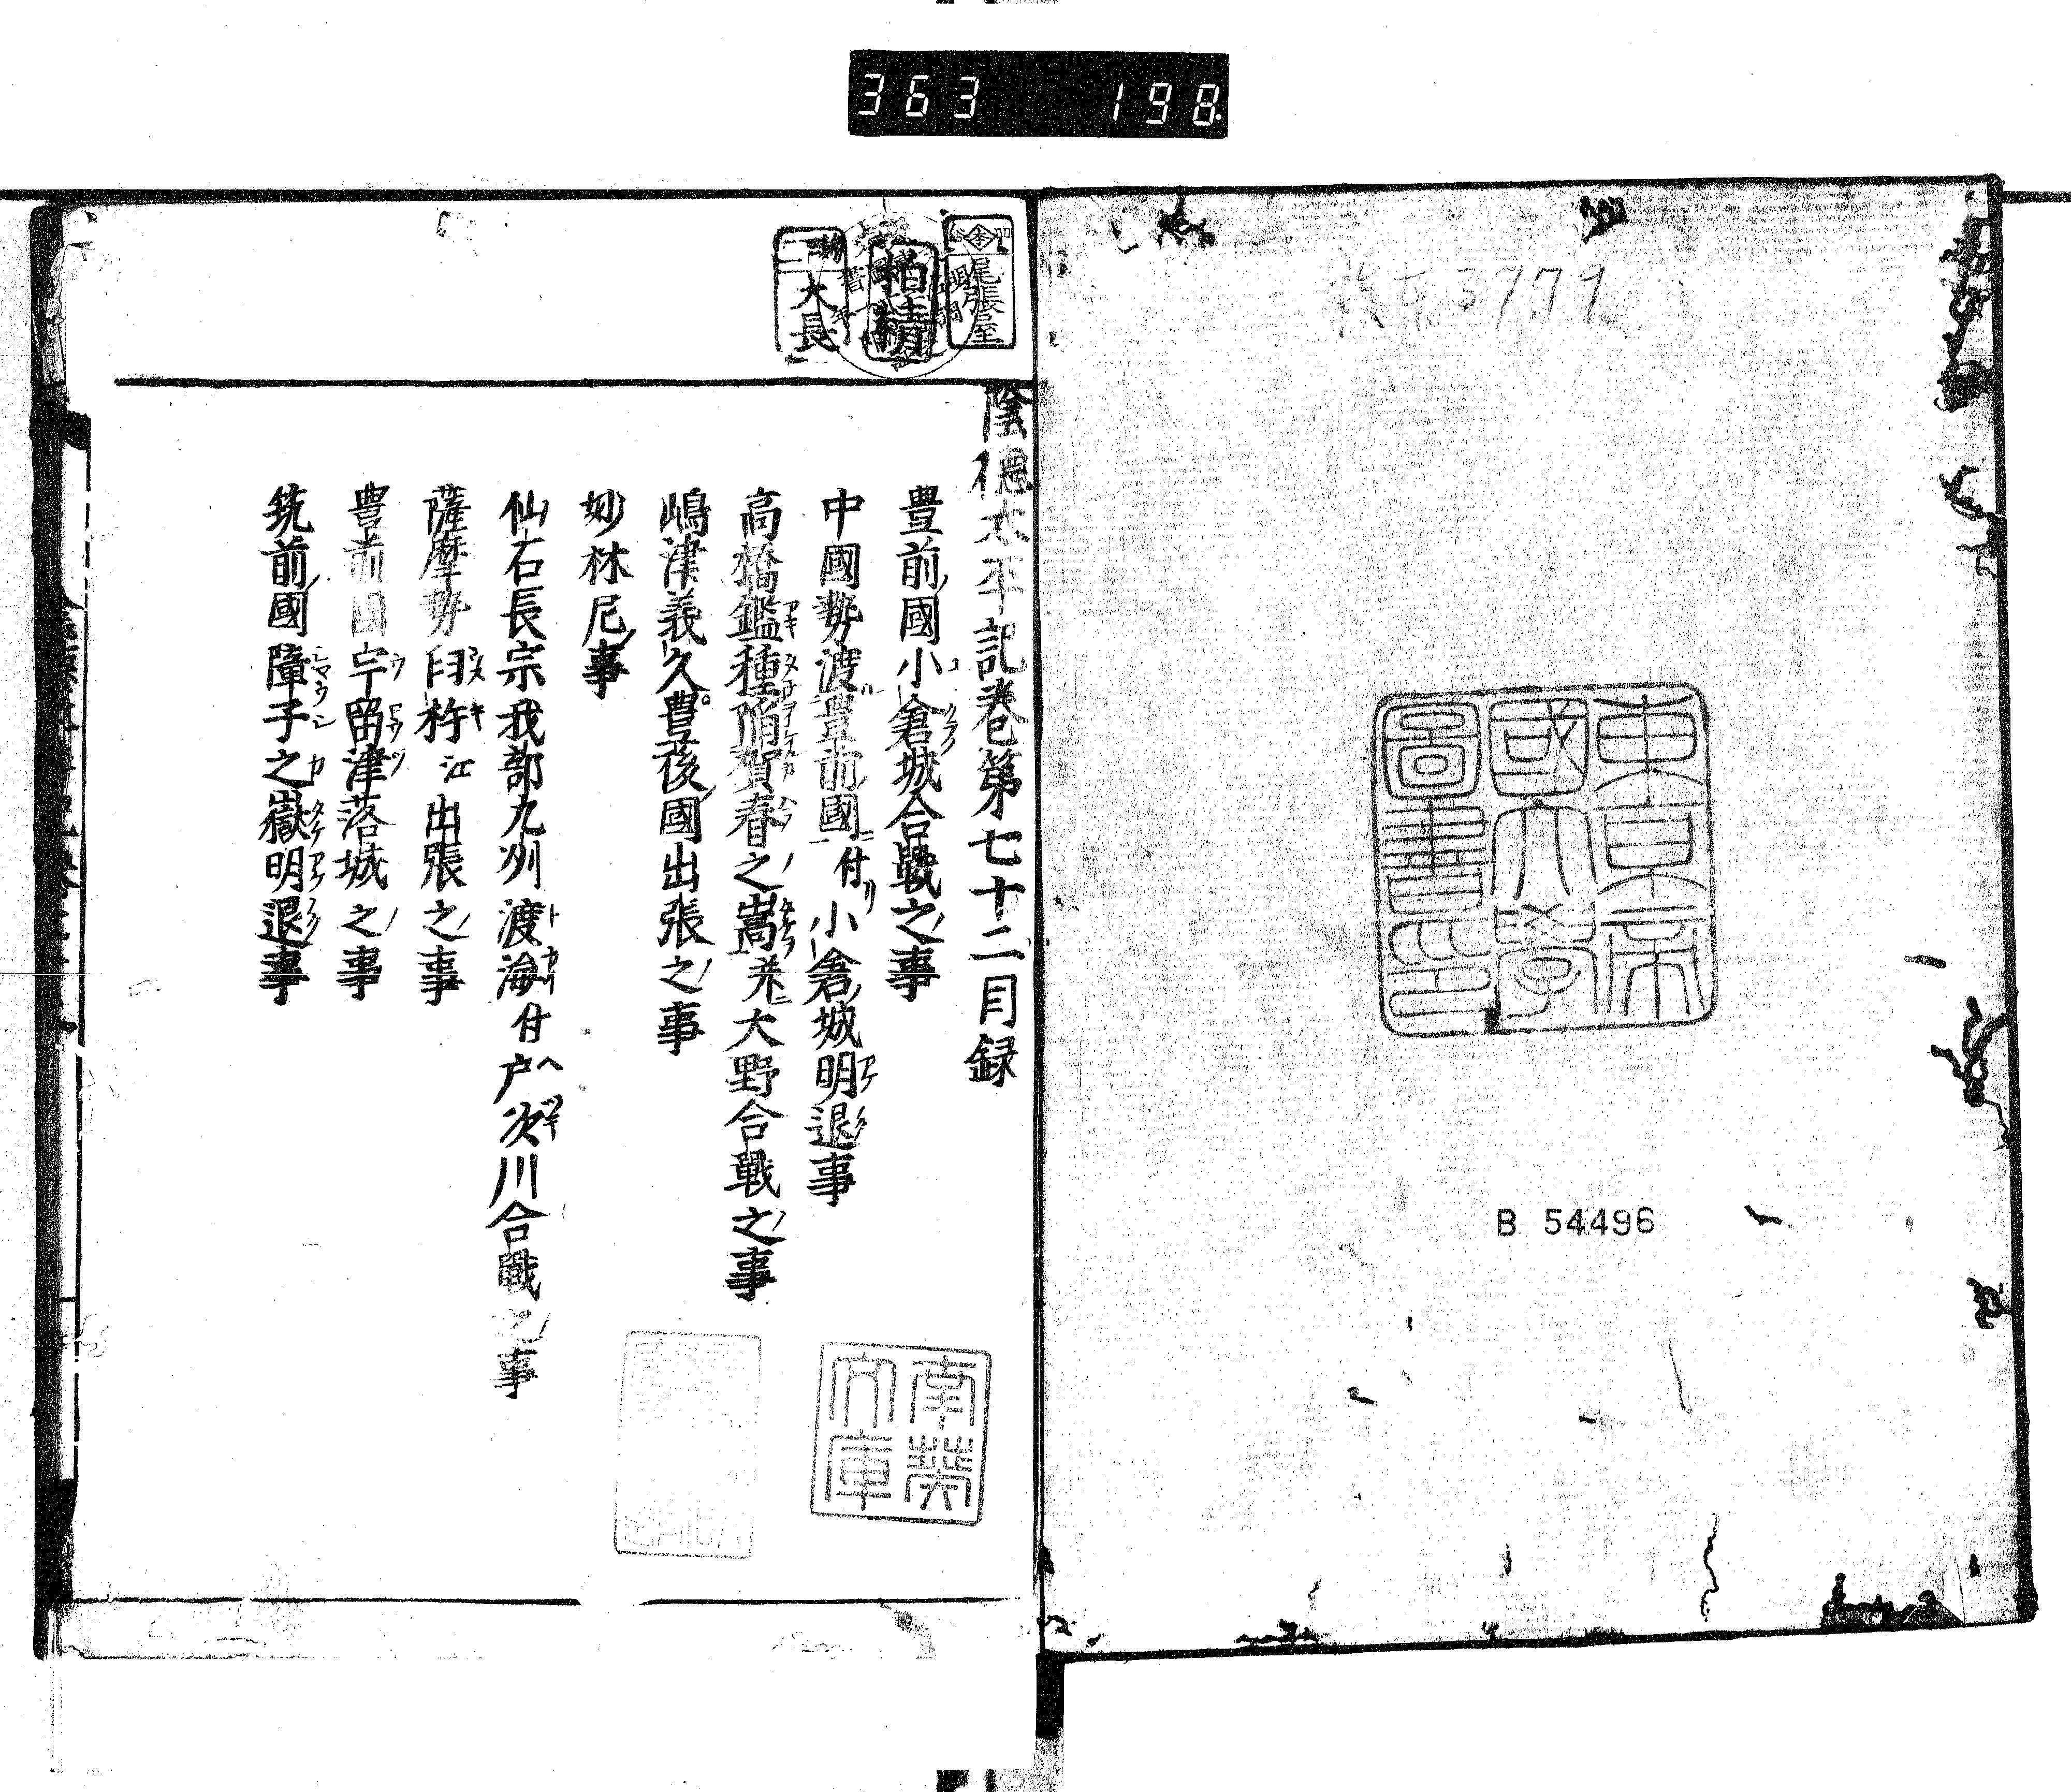 363 198
東京帝
國大學
圖書印
B 54496
尾張屋
大長
陰徳太平記巻第七十二目録
豊前國小倉城合戰之事
中國勢渡豊前國付小倉城明退事
高橋鑑種陷賀春之嵩并大野合戰之事
嶋津義久豊後國出張之事
妙林尼事
仙石長宗我部九州渡海付戸次川合戰之事
薩摩勢臼杵江出張之事
豊前國宇留津落城之事
筑前國障子之嶽明退事
南葵
文庫